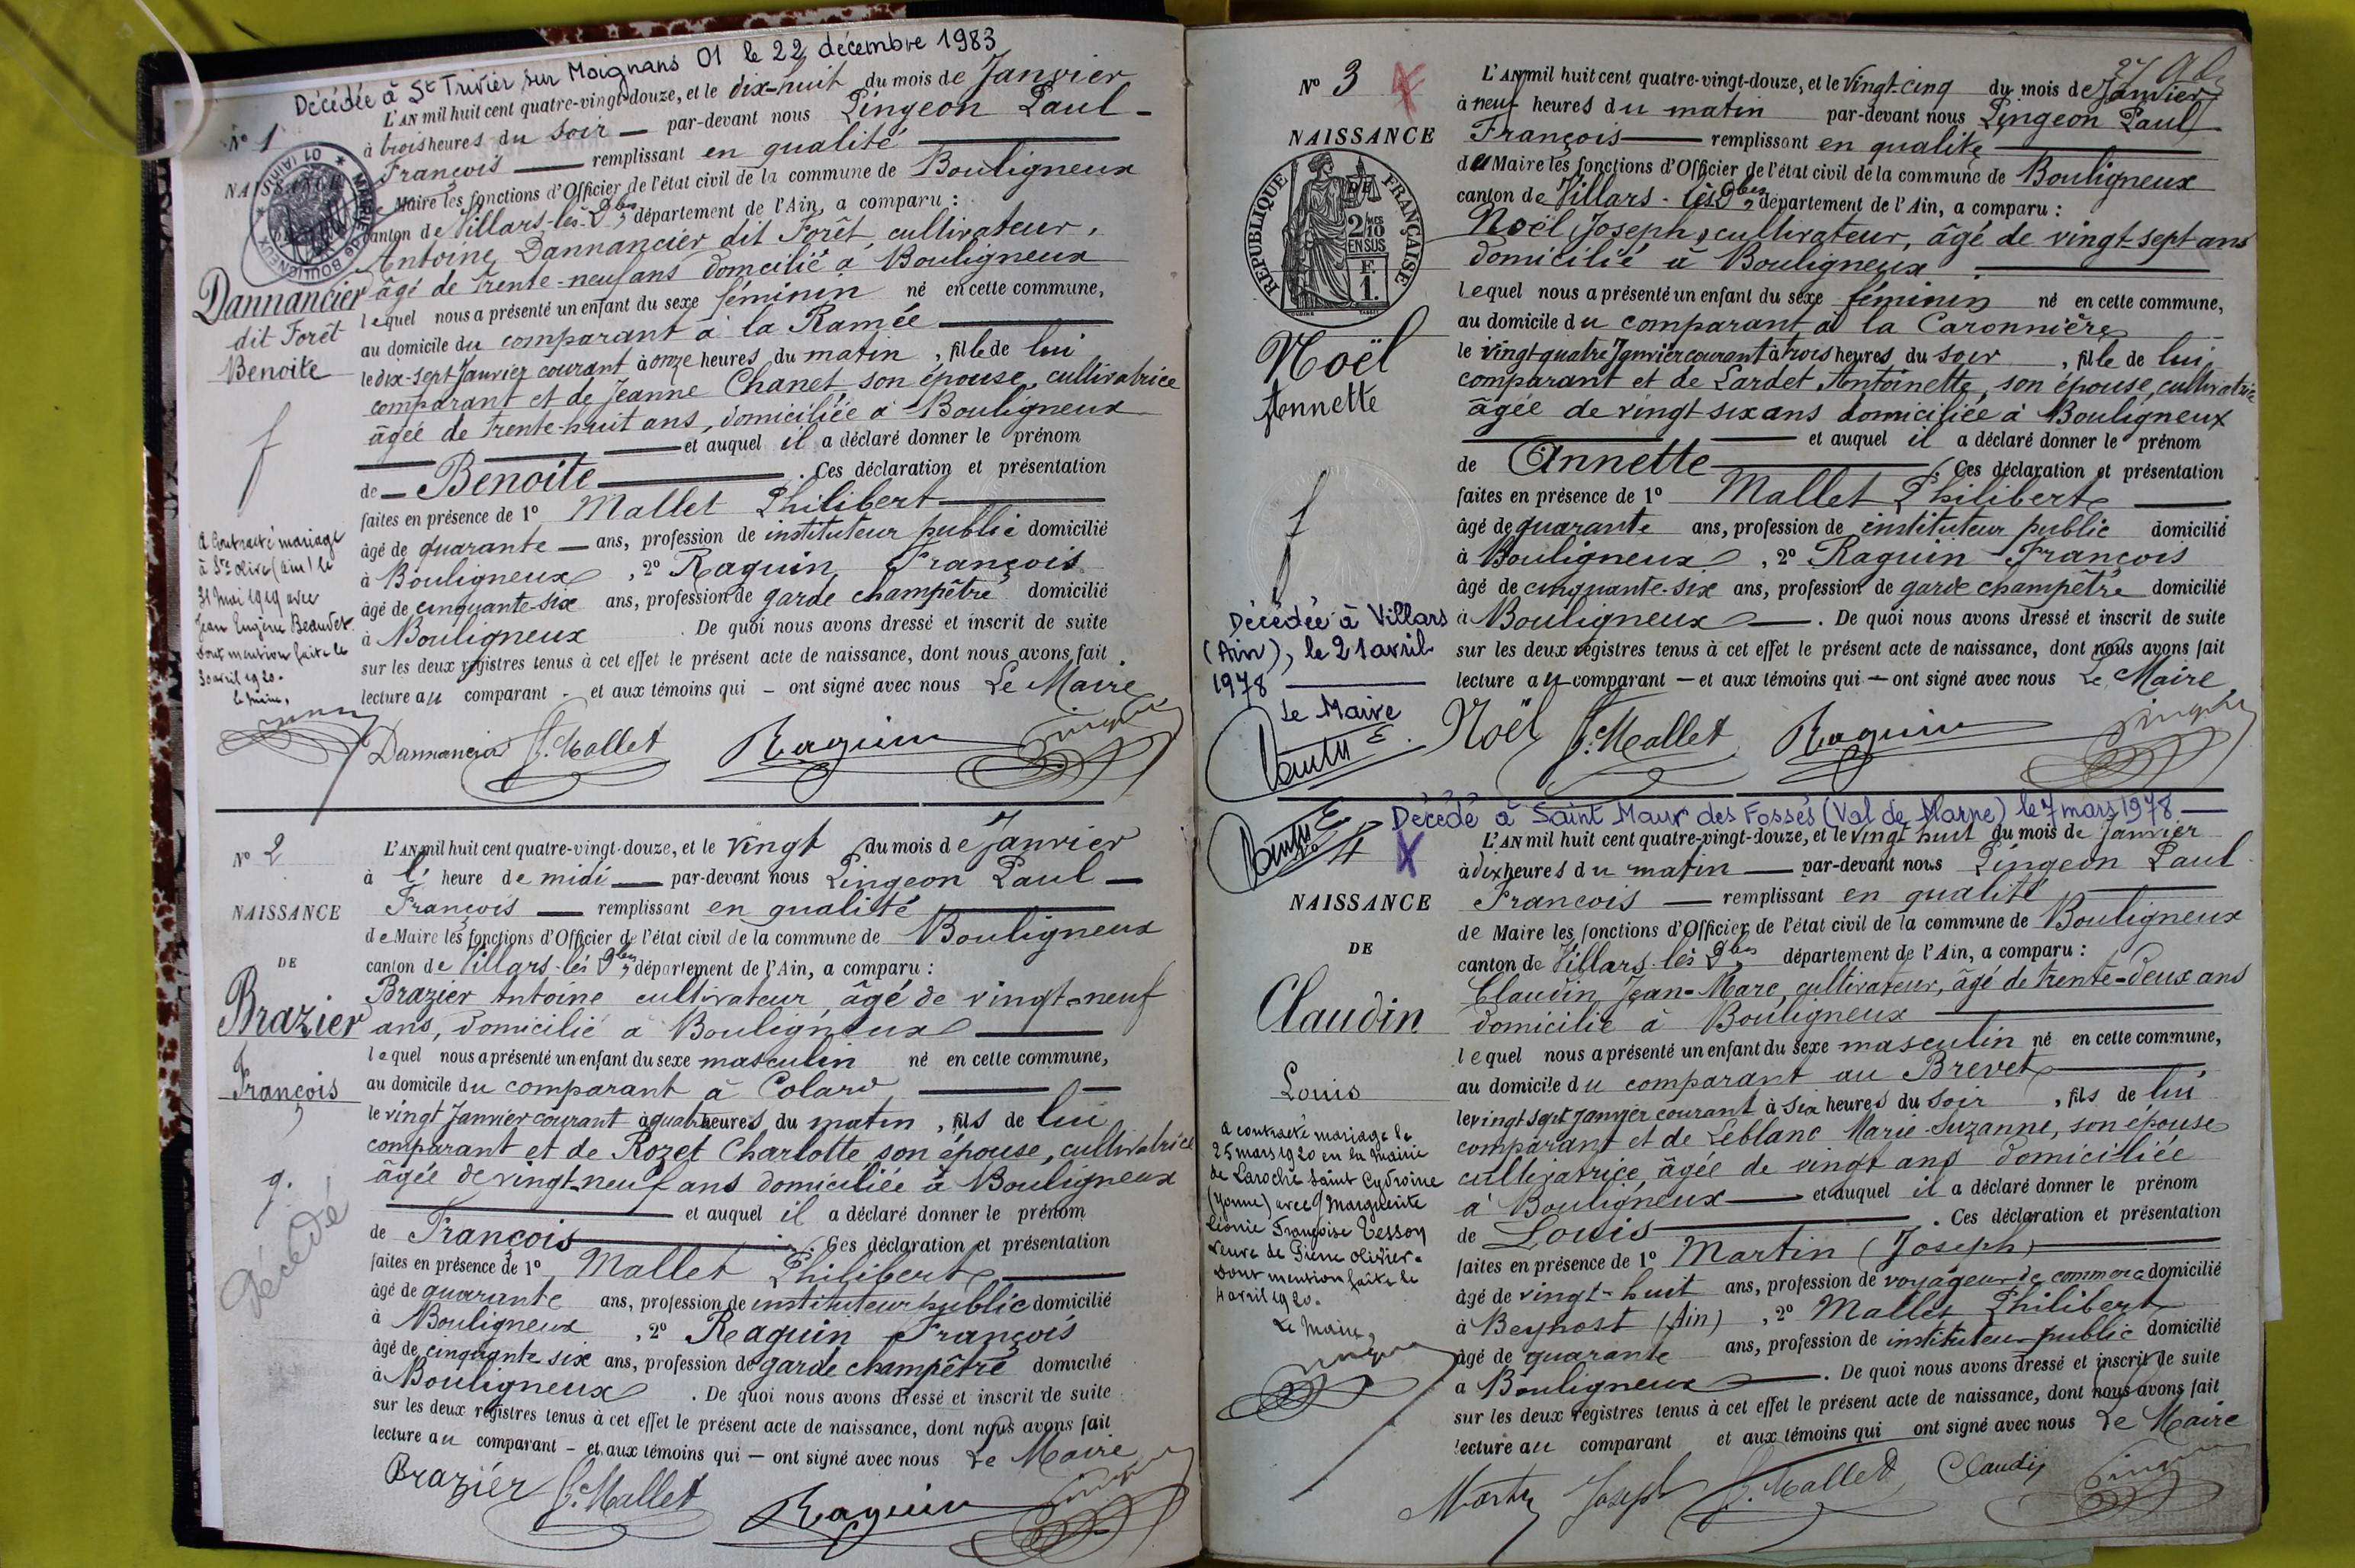 Décédée à St Trivier sur Moignans 01 le 22 décembre 1983
L'AN mil huit cent quatre-vingt-douze, et le dix-huit du mois de Janvier
à trois heures du soir — par-devant nous Pingeon Paul -
François — remplissant en qualité
de Maire les fonctions d'Officier de l'état civil de la commune de Bouligneux
canton de Villars-les-Dbes, département de l'Ain, a comparu :
Antoine Dannancier dit Forêt, cultivateur,
âgé de trente-neuf ans domicilié à Bouligneux
lequel nous a présenté un enfant du sexe féminin né en cette commune,
au domicile du comparant à la Ramée
le dix-sept Janvier courant à onze heures du matin, fille de lui
comparant et de Jeanne Chanet son épouse, cultivatrice
âgée de trente-huit ans, domiciliée à Bouligneux
et auquel il a déclaré donner le prénom
de — Benoite — . Ces déclaration et présentation
faites en présence de 1° Mallet Philibert
âgé de quarante — ans, profession de instituteur public domicilié
à Bouligneux, 2° Raquin François
âgé de cinquante-six ans, profession de garde champêtre domicilié
à Bouligneux . De quoi nous avons dressé et inscrit de suite
sur les deux registres tenus à cet effet le présent acte de naissance, dont nous avons fait
lecture au comparant - et aux témoins qui - ont signé avec nous Le Maire
Dannancier P. Mallet Raquin Pingeon
N° 1
MAIRIE DE BOULIGNEUX
01 (AIN)
Dannancier
dit Forêt
Benoite
f
a contracté mariage
à Ste Olive (Ain) le
31 mai 1919 avec
Jean Eugène Beaudet
dont mention faite le
30 avril 1920.
le maire,
N° 2
NAISSANCE
DE
Brazier
François
g.
décédé
L'AN mil huit cent quatre-vingt-douze, et le vingt du mois de Janvier
à l' heure de midi — par-devant nous Pingeon Paul —
François — remplissant en qualité
de Maire les fonctions d'Officier de l'état civil de la commune de Bouligneux
canton de Villars-les-Dbes, département de l'Ain, a comparu :
Brazier Antoine cultivateur, âgé de vingt-neuf
ans, domicilié à Bouligneux
lequel nous a présenté un enfant du sexe masculin né en cette commune,
au domicile du comparant à Colard
le vingt Janvier courant à quatre heures du matin, fils de lui
comparant et de Rozet Charlotte son épouse, cultivatrice
âgée de vingt-neuf ans domiciliée à Bouligneux
et auquel il a déclaré donner le prénom
de François . Ces déclaration et présentation
faites en présence de 1° Mallet Philibert
âgé de quarante ans, profession de instituteur public domicilié
à Bouligneux, 2° Raquin François
âgé de cinquante six ans, profession de garde champêtre domicilié
à Bouligneux . De quoi nous avons dressé et inscrit de suite
sur les deux registres tenus à cet effet le présent acte de naissance, dont nous avons fait
lecture au comparant - et aux témoins qui — ont signé avec nous Le Maire
Brazier P. Mallet Raquin Pingeon
N° 3
NAISSANCE
REPUBLIQUE FRANÇAISE
2/10 MES
EN SUS
F. 1.
Noël
Annette
f
Décédée à Villars
(Ain), le 21 avril
1978
Le Maire
L'AN mil huit cent quatre-vingt-douze, et le vingt-cinq du mois de Janvier
à neuf heures du matin par-devant nous Pingeon Paul
François — remplissant en qualité
du Maire les fonctions d'Officier de l'état civil de la commune de Bouligneux
canton de Villars-les Dbes, département de l'Ain, a comparu :
Noël Joseph, cultivateur, âgé de vingt-sept ans
domicilié à Bouligneux
lequel nous a présenté un enfant du sexe féminin né en cette commune,
au domicile du comparant à la Caronnière
le vingt quatre Janvier courant à trois heures du soir, fille de lui
comparant et de Lardet Antoinette, son épouse, cultivatrice
âgée de vingt-six ans domiciliée à Bouligneux
et auquel il a déclaré donner le prénom
de Annette . Ces déclaration et présentation
faites en présence de 1° Mallet Philibert
âgé de quarante ans, profession de instituteur public domicilié
à Bouligneux, 2° Raquin François
âgé de cinquante-six ans, profession de garde champêtre domicilié
à Bouligneux — . De quoi nous avons dressé et inscrit de suite
sur les deux registres tenus à cet effet le présent acte de naissance, dont nous avons fait
lecture au comparant — et aux témoins qui — ont signé avec nous Le Maire
Noël P. Mallet Raquin Pingeon
Décédé à Saint Maur des Fossés (Val de Marne) le 7 mars 1978 —
N° 4
NAISSANCE
DE
Claudin
Louis
a contracté mariage le
25 mars 1920 en la mairie
de Laroche Saint Cydroine
(Yonne) avec Marguerite
Léonie Françoise Tesson
veuve de Pierre Olivier.
dont mention faite le
4 avril 1920.
Le Maire,
L'AN mil huit cent quatre-vingt-douze, et le vingt huit du mois de Janvier
à dix heures du matin — par-devant nous Pingeon Paul
François — remplissant en qualité
de Maire les fonctions d'Officier de l'état civil de la commune de Bouligneux
canton de Villars-les Dbes, département de l'Ain, a comparu :
Claudin Jean-Marc, cultivateur, âgé de trente-deux ans
domicilié à Bouligneux
lequel nous a présenté un enfant du sexe masculin né en cette commune,
au domicile du comparant au Brevet
le vingt sept Janvier courant à six heures du soir, fils de lui
comparant et de Leblanc Marie-Suzanne, son épouse
cultivatrice, âgée de vingt ans domiciliée
à Bouligneux — et auquel il a déclaré donner le prénom
de Louis . Ces déclaration et présentation
faites en présence de 1° Martin (Joseph)
âgé de vingt-huit ans, profession de voyageur de commerce domicilié
à Beynost (Ain), 2° Mallet Philibert
âgé de quarante ans, profession de instituteur public domicilié
à Bouligneux — . De quoi nous avons dressé et inscrit de suite
sur les deux registres tenus à cet effet le présent acte de naissance, dont nous avons fait
lecture au comparant et aux témoins qui ont signé avec nous Le Maire
Martin Joseph P. Mallet Claudin Pingeon